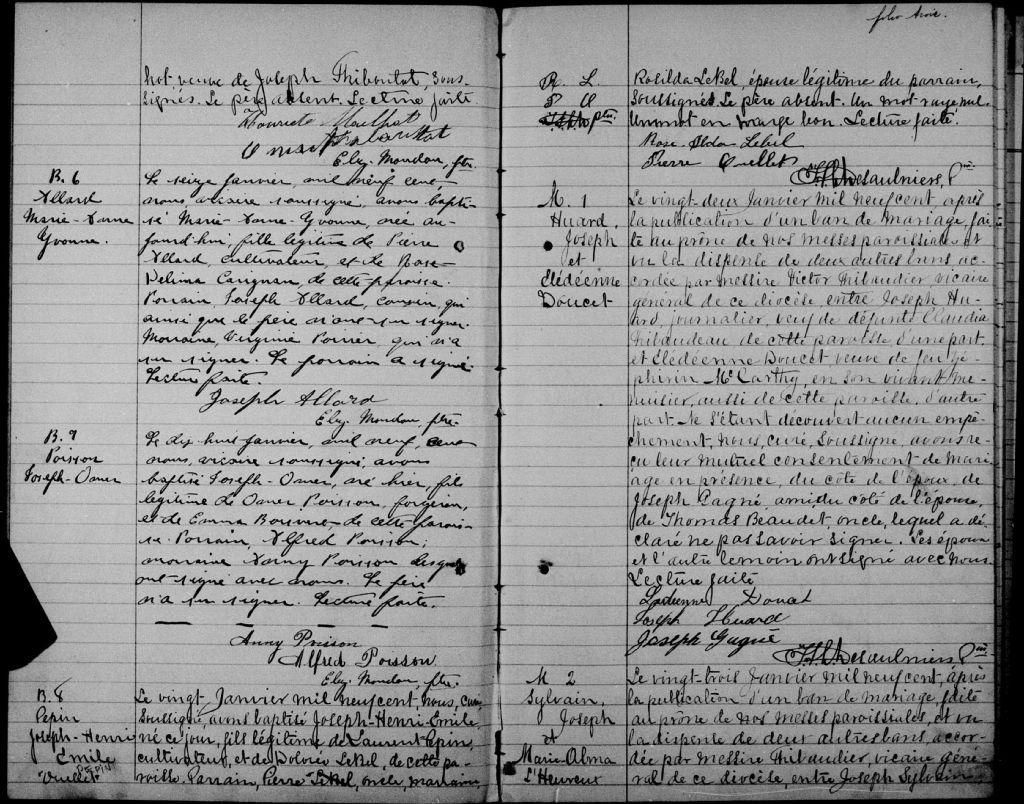 hot veuve de Joseph Thiboutot, sous-
signés. Le père absent. Lecture faite.
Elz. Mondou, ptre
B. 6
Allard
Marie-Anne
Yvonne.
Le seize janvier, mil neuf cent,
nous vicaire soussigné, avons bapti-
sé Marie-Anne-Yvonne, née au-
jourd'hui, fille légitime de Pierre
Allard, cultivateur, et de Rose-
Delima Carignan de cette paroisse.
Parrain, Joseph Allard, cousin, qui
ainsi que le père n'ont su signer.
Marraine, Virginie Poirier, qui n'a
su signer. Le parrain a signé.
Lecture faite.
Joseph Allard
Elz. Mondou, ptre
B. 7
Poisson
Joseph-Omer
Le dix huit janvier, mil neuf, cent
nous, vicaire soussigné, avons
baptisé Joseph-Omer, né hier, fils
légitime de Omer Poisson, forgeron,
et de Emma de cette parois-
se. Parrain, Alfred Poisson;
marraine Anny Poisson lesquels
ont signé avec nous. Le père
n'a su signer. Lecture faite.
Anny Poisson
Alfred Poisson
Elz. Mondou, ptre.
B. 8
Pepin
Joseph-Henri
Emile
PEPIN
Ouellet
Le vingt Janvier mil neuf cent, nous, curé,
Soussigné, avons baptisé Joseph-Henri-Emile,
né ce jour, fils légitime de Laurent Pepin,
cultivateur, et de LeBel, de cette pa-
roisse. Parrain, Pierre LeBel, oncle, marraine,
folio trois.
R. L.
P O
ptre
Robilda LeBel, épouse légitime du parrain,
Soussignés. Le père absent. Un mot rayé nul.
Un mot en marge bon. Lecture faite.
Rose Lebel
Pierre Ouellet
Desaulniers, P
M. 1
Huard,
Joseph
et
Elédéenne
Doucet
Le vingt-deux Janvier mil neuf cent, après
la publication d'un ban de mariage, fai-
te au prône de nos messes paroissiales et
vu la dispense de deux autres bans ac-
cordée par messire Victor Thibaudier, vicaire
général de ce diocèse, entre Joseph Hu-
ard, journalier, veuf de défunte Claudia
Thibaudeau de cette paroisse, d'une part,
et Elédéenne Doucet, veuve de feu Zé-
phirin McCarthy, en son vivant me-
nuisier, aussi de cette paroisse, d'autre
part. Ne s'étant découvert aucun empê-
chement, nous, curé, soussigné, avons re-
çu leur mutuel consentement de mari-
age en présence, du côté de l'époux, de
Joseph Gagné, ami, du côté de l'épouse,
de Thomas Beaudet, oncle, lequel a dé-
claré ne pas savoir signer. Les époux
et l'autre témoin ont signé avec nous.
Lecture faite
Doucet
Joseph Huard
Joseph Gagné
Desaulniers P
M 2
Sylvain,
Joseph
et
Marie-Alma
L'Heureux
Le vingt-trois Janvier mil neuf cent, après
la publication d'un ban de mariage, faite
au prône de nos messes paroissiales, et vu
la dispense de deux autres bans, accor-
dée par messire Thibaudier, vicaire géné-
ral de ce diocèse, entre Joseph Sylvain